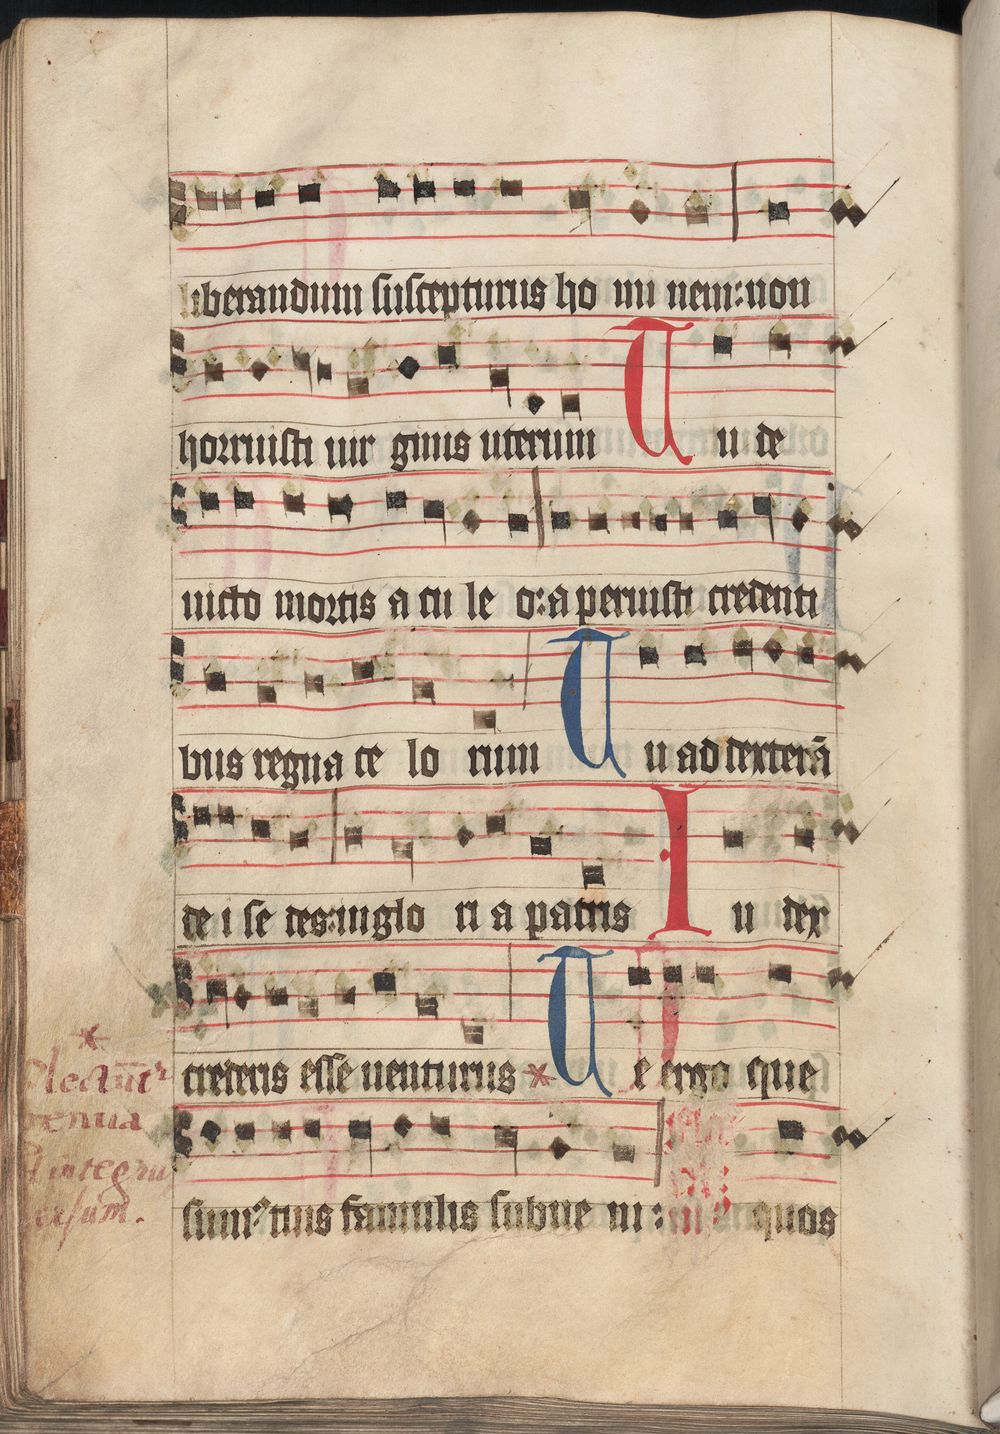 liberandum suscepturus ho mi nem: non
horruisti uir ginis uterum T u de
uicto mortis a cu le o: a peruisti credenti
bus regna ce lo rum T u ad dexterā
de i se des: in glo ri a patris I u dex
crederis esse uenturus * T e ergo que
sum⁹ tuis famulis subue ni: quos
*
flectūtr
genua
integru
ersum.